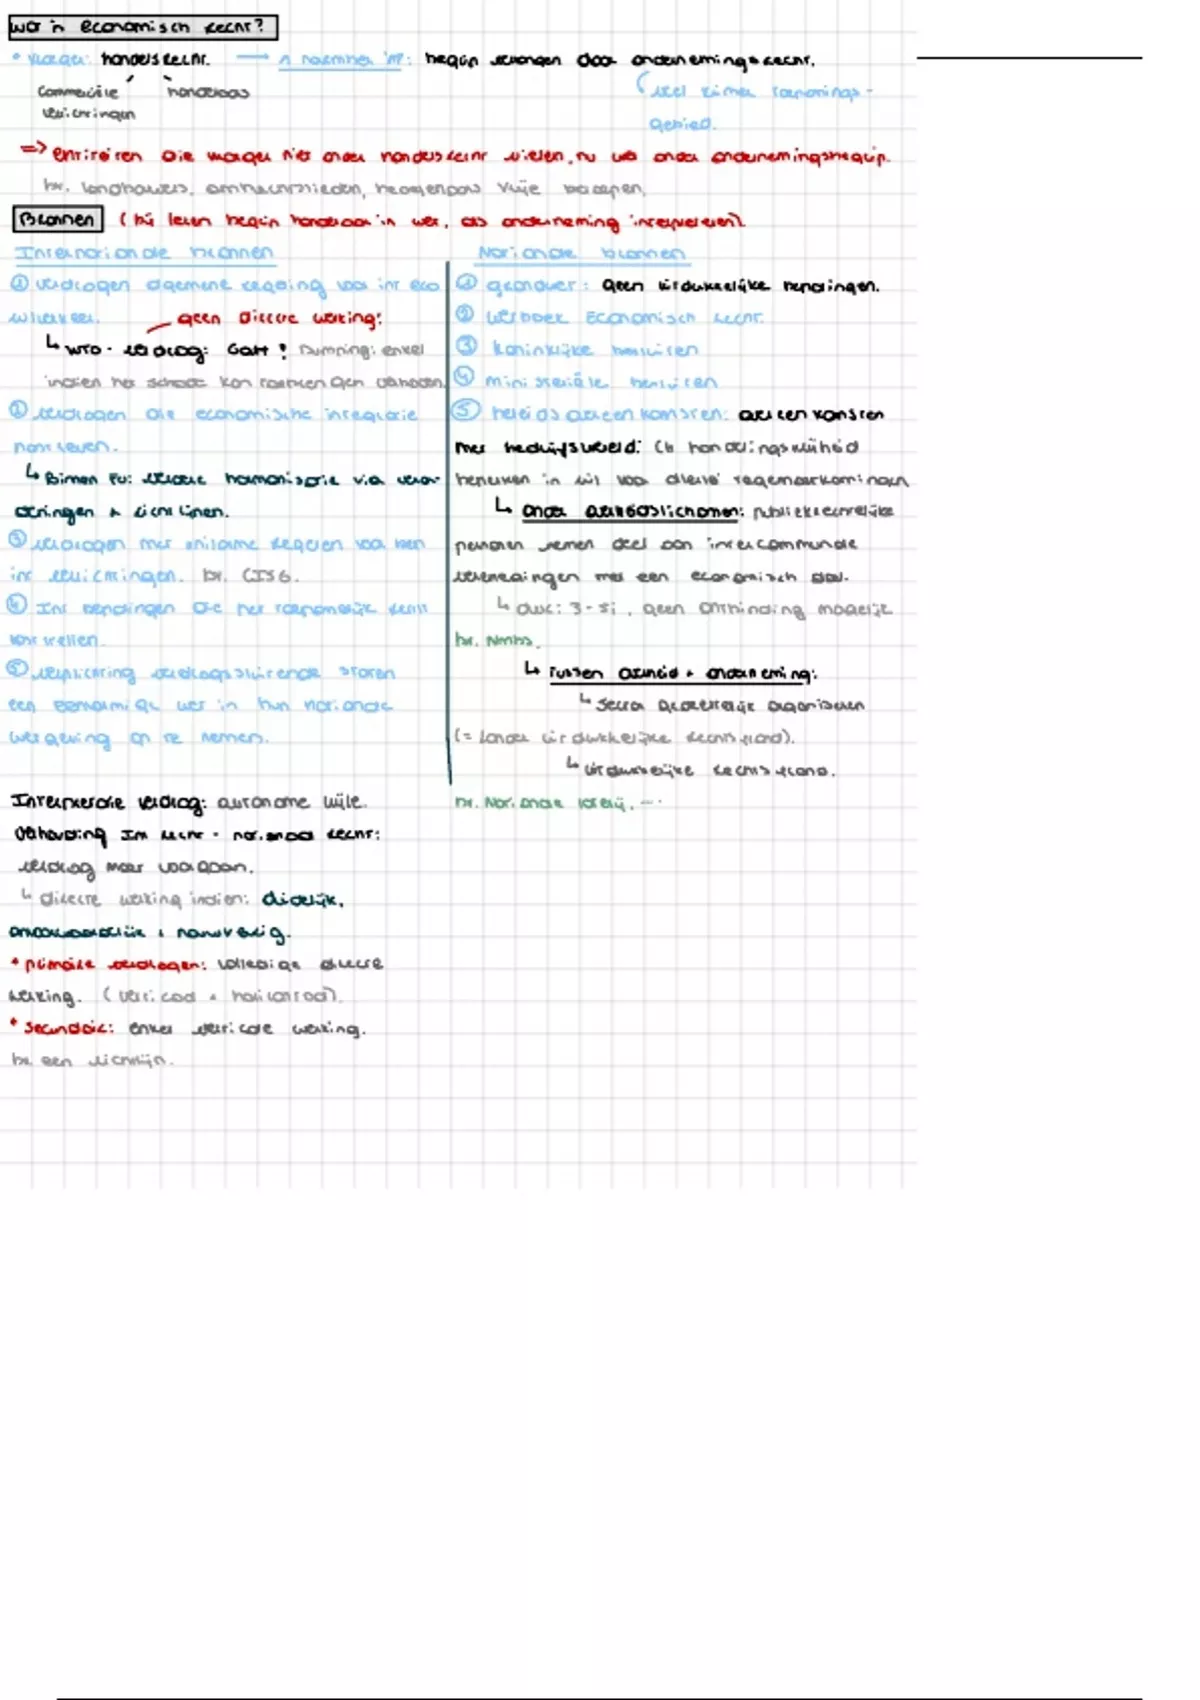 Wat is economisch recht?
* Vroeger: handelsrecht. → 1 november '18: begrip vervangen door ondernemingsrecht.
commerciële handelaars veel ruimer toepassings-
verrichtingen gebied.
=> entiteiten die vroeger niet onder handelsrecht vielen, nu wel onder ondernemingsbegrip.
bv. landbouwers, ambachtslieden, beoefenaars vrije beroepen,
Bronnen (bij lezen begrip handelaar in wet, als onderneming interpreteren)
Internationale bronnen
① verdragen algemene regeling voor int eco
verkeer. geen directe werking:
↳ WTO-verdrag: GATT! Dumping: enkel
indien het schade kan toebrengen verboden.
② verdragen die economische integratie
nastreven.
↳ Binnen EU: verdere harmonisatie via veror-
deningen + richtlijnen.
③ verdragen met uniforme regelen voor een
int verrichtingen. bv. CISG.
④ Int bepalingen die het toepasselijk recht
vaststellen.
⑤ verplichting verdragssluitende staten
een eenvormige wet in hun nationale
wetgeving op te nemen.
Nationale bronnen
① grondwet: geen uitdrukkelijke bepalingen.
② Wetboek Economisch Recht.
③ koninklijke besluiten
④ ministeriële besluiten
⑤ beleidsovereenkomsten: overeenkomsten
met bedrijfswereld: (+ handelingsvrijheid
beperken in ruil voor allerlei tegemoetkomingen
↳ onder overheidslichamen: publiekrechtelijke
personen nemen deel aan intercommunale
verenigingen met een economisch doel.
↳ duur: 3-5j, geen ontbinding mogelijk
bv. NMBS.
↳ Tussen overheid + onderneming:
↳ sector gedeeltelijk organiseren
(= zonder uitdrukkelijke rechtsgrond).
↳ uitdrukkelijke rechtsgrond.
bv. Nationale loterij, ...
Interpretatie verdrag: autonome wijze.
Verhouding Int recht - nationaal recht:
verdrag moet voorgaan.
↳ directe werking indien: duidelijk,
onvoorwaardelijk + nauwkeurig.
* primaire verdragen: volledige directe
werking. (verticaal + horizontaal).
* Secundair: enkel verticale werking.
bv. een richtlijn.